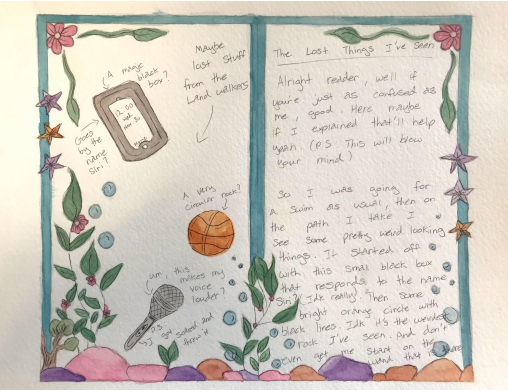 A magic
black
box?
Maybe
lost stuff
from the
Land walkers
12:00
Goes
by the
name
Siri?
A very
circular rock?
um, this
makes my
voice
louder?
P.S
I got scared and
threw it
The Lost Things I've Seen
Alright reader, well if
you're just as confused as
me, good. Here maybe
if I explained that'll help
yeah. (P.S This will blow
your mind)
So I was going for
a swim as usual, then on
the path I take I
see some pretty weird looking
things. It started off
with this small black box
that responds to the name
Siri? Idk really. Then some
bright orange circle with
black lines. Idk it's the weirdest
rock I've seen. and don't
even get me start on the
wand that is